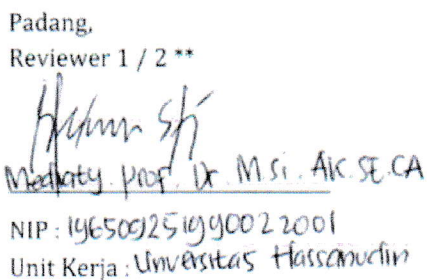 Padang,
Reviewer 1 / 2 **
Mediaty, Prof. Dr. M.Si. AK. SE. CA
NIP : 196509251990022001
Unit Kerja : Universitas Hassanudin